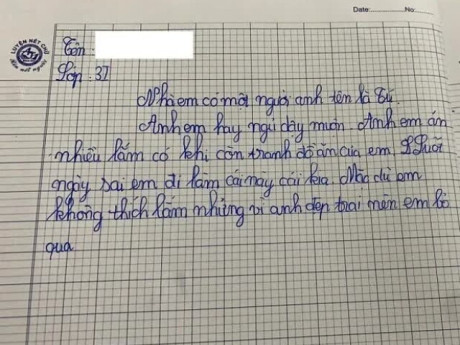 Date: No:
LUYỆN NÉT CHỮ
RÈN NẾT NGƯỜI
Tên :
Lớp : 31
Nhà em có một người anh tên là Tú.
Anh em hay ngủ dậy muộn. Anh em ăn
nhiều lắm có khi còn tranh đồ ăn của em. Suốt
ngày sai em đi làm cái này cái kia. Mặc dù em
không thích lắm nhưng vì anh đẹp trai nên em bỏ
qua